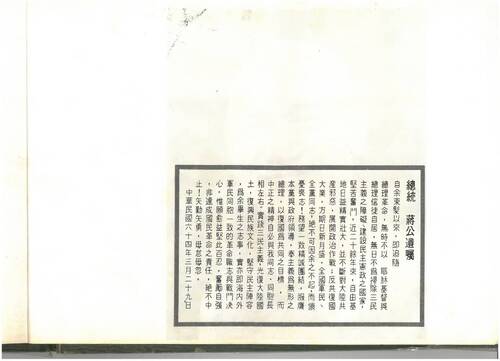 總統 蔣公遺囑
自余束髮以來，即追隨
總理革命，無時不以 耶穌基督與
總理信徒自居，無日不為掃除三民
主義之障礙，建設民主憲政之國家，
堅苦奮鬥。近二十餘年來，自由基
地日益精實壯大，並不斷對大陸共
產邪惡，展開政治作戰；反共復國
大業，方期日新月盛，全國軍民、
全黨同志，絕不可因余之不起，而懷
憂喪志！務望一致精誠團結，服膺
本黨與政府領導，奉主義為無形之
總理，以復國為共同之目標，而
中正之精神自必與我同志、同胞長
相左右。實踐三民主義，光復大陸國
土，復興民族文化，堅守民主陣容
，為余畢生之志事，實亦即海內外
軍民同胞一致的革命職志與戰鬥決
心。惟願愈益堅此百忍，奮勵自強
，非達成國民革命之責任，絕不中
止！矢勤矢勇，毋怠毋忽。
中華民國六十四年三月二十九日